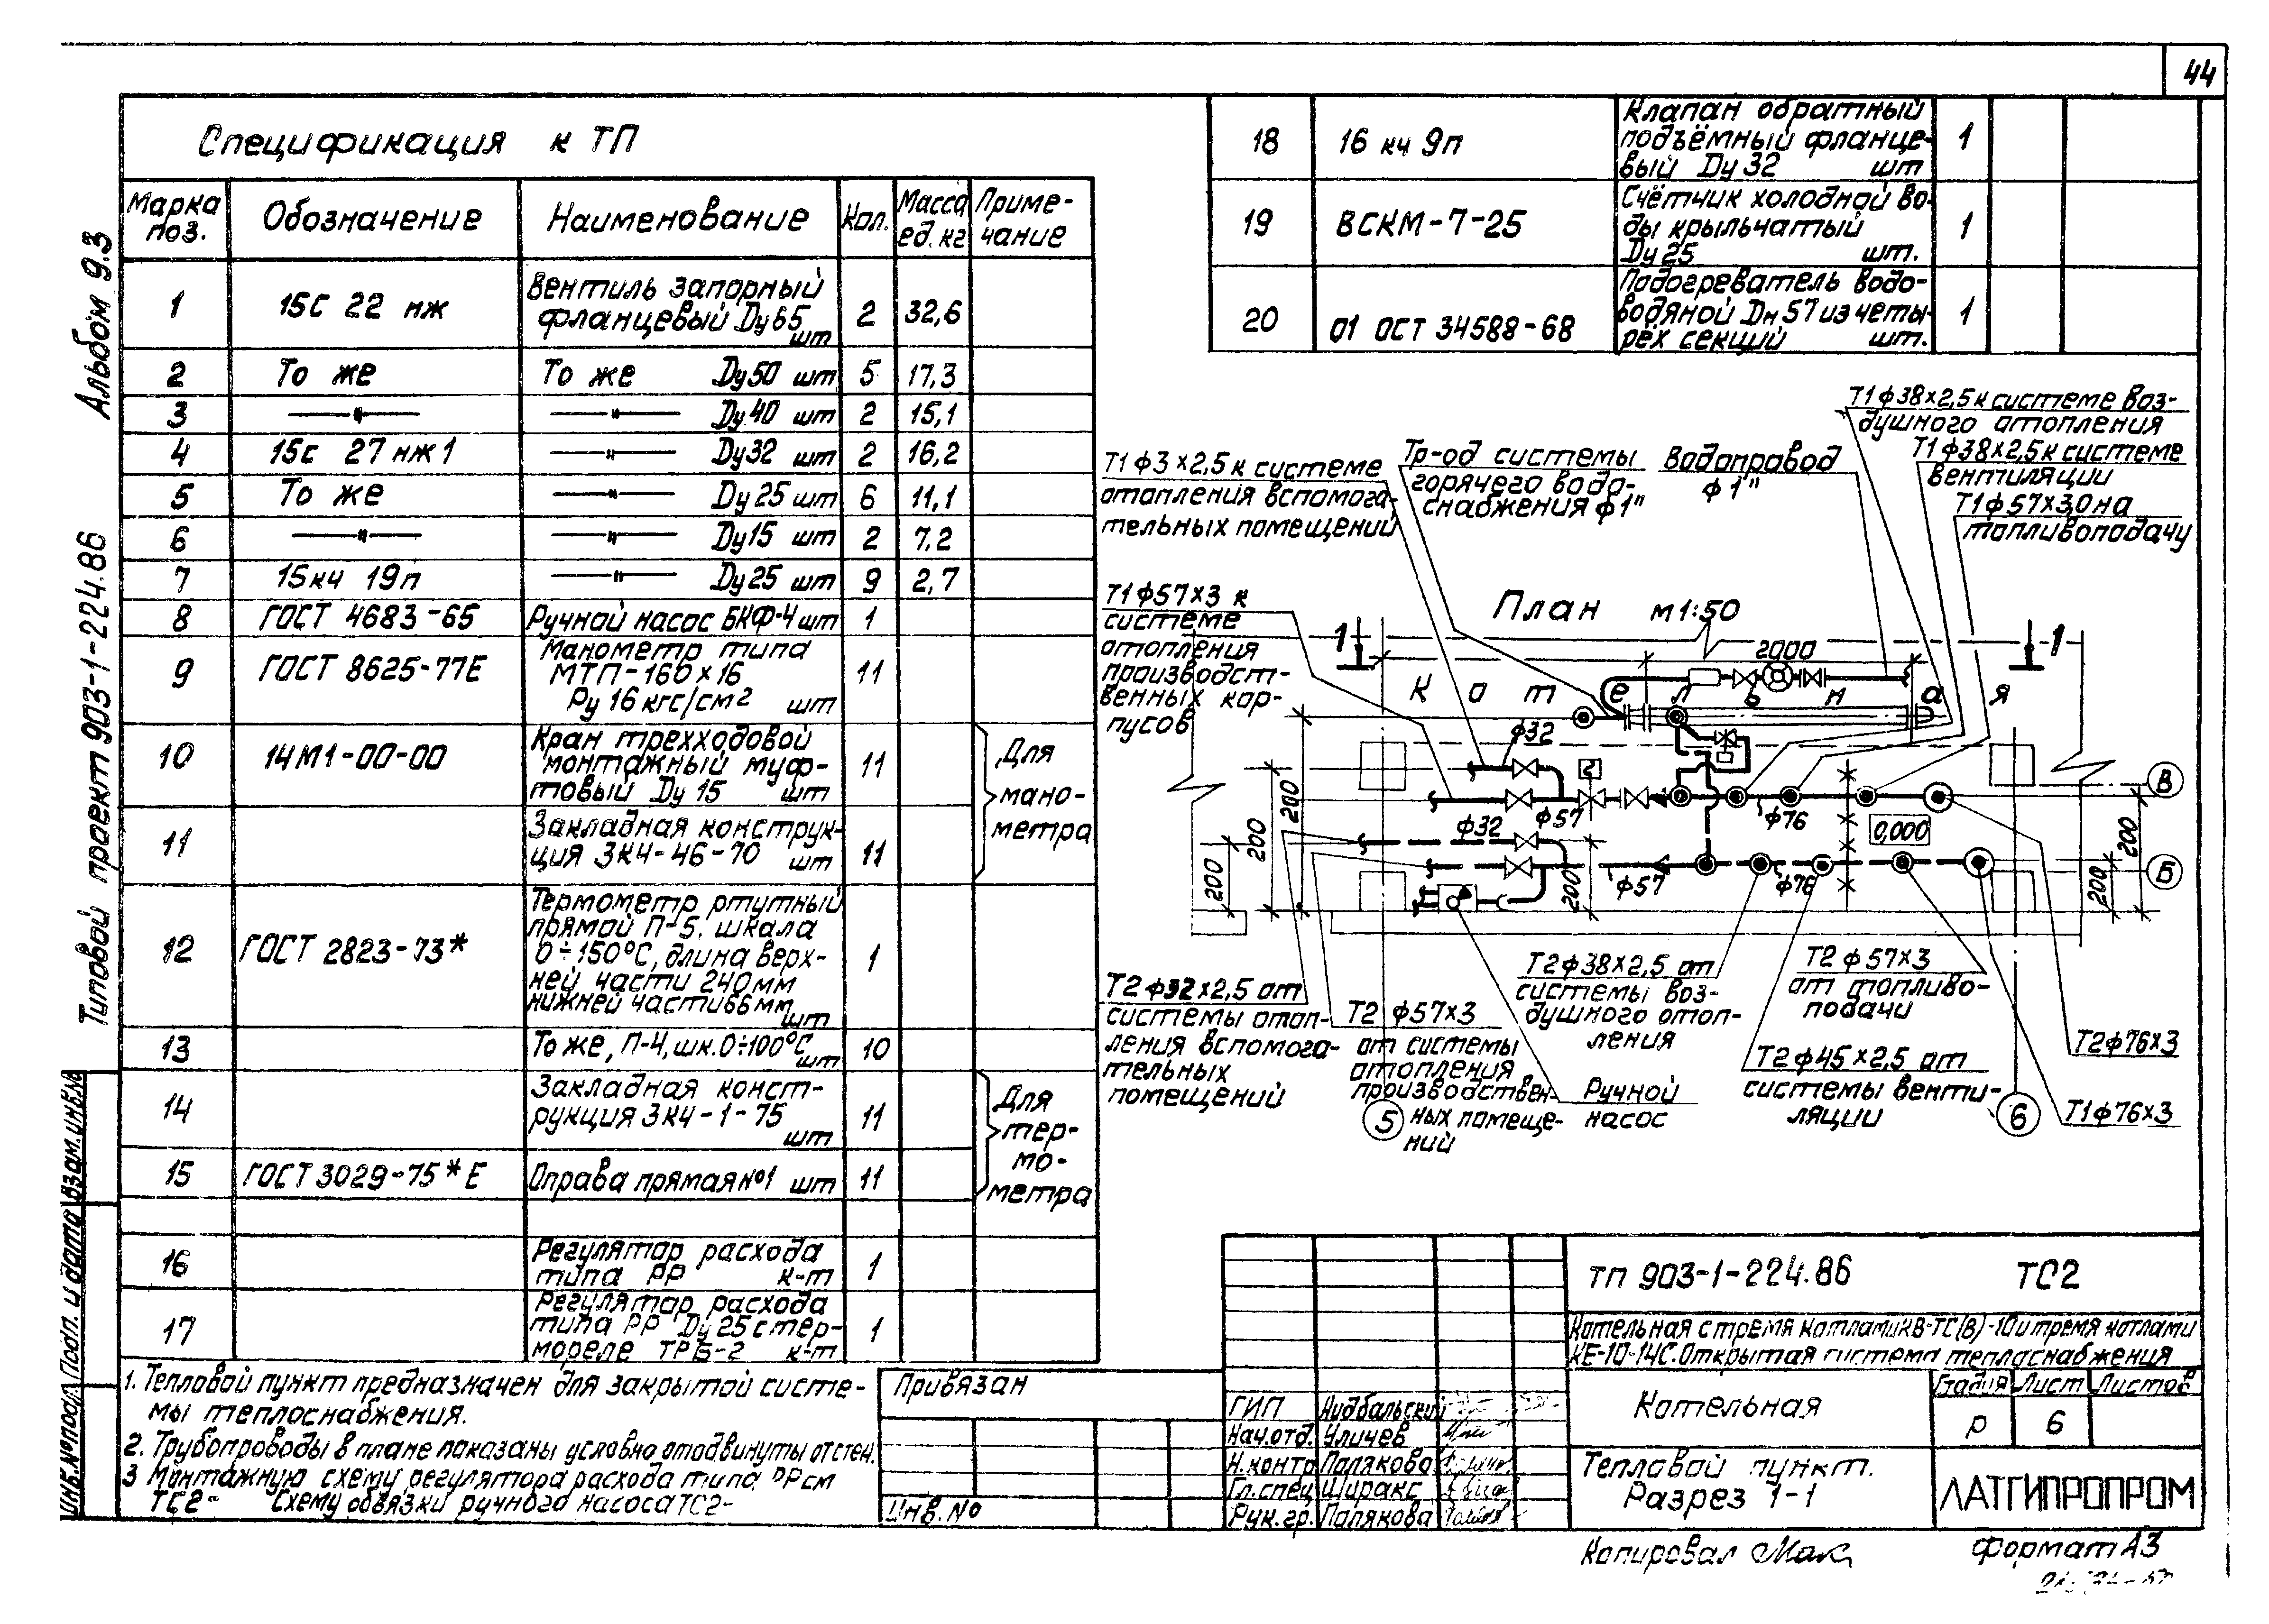 44
Альбом 9.3
Типовой проект 903-1-224.86
Инв.№подл. Подп. и дата Взам.инв.№
Спецификация к ТП
Марка поз. Обозначение Наименование Кол. Масса ед. кг Примечание
1 15с 22 нж Вентиль запорный
фланцевый Ду65 шт 2 32,6
2 То же То же Ду50 шт 5 17,3
3 —"— —"— Ду40 шт 2 15,1
4 15с 27 нж1 —"— Ду32 шт 2 16,2
5 То же —"— Ду25 шт 6 11,1
6 —"— —"— Ду15 шт 2 7,2
7 15кч 19п —"— Ду25 шт 9 2,7
8 ГОСТ 4683-65 Ручной насос БКФ-4 шт 1
9 ГОСТ 8625-77Е Манометр типа
МТП-160×16
Ру 16 кгс/см2 шт 11
10 14М1-00-00 Кран трехходовой
монтажный муф-
товый Ду 15 шт 11
11 Закладная конструк-
ция ЗК4-46-70 шт 11
Для
мано-
метра
12 ГОСТ 2823-73* Термометр ртутный
прямой П-5. шкала
0÷150°С, длина верх-
ней части 240мм
нижней части 66мм
шт 1
13 То же, П-4, шк. 0÷100°С
шт 10
14 Закладная конст-
рукция ЗК4-1-75
шт 11
15 ГОСТ 3029-75*Е Оправа прямая №1 шт 11
Для
тер-
мо-
метра
16 Регулятор расхода
типа РР к-т 1
17 Регулятор расхода
типа РР Ду 25 с тер-
мореле ТРБ-2 к-т 1
18 16 кч 9п Клапан обратный
подъёмный фланце-
вый Ду 32 шт 1
19 ВСКМ-7-25 Счётчик холодной во-
ды крыльчатый
Ду 25 шт. 1
20 01 ОСТ 34588-68 Подогреватель водо-
водяной Дн 57 из четы-
рёх секций шт. 1
Т1 ф38×2,5 к системе воз-
душного отопления
Т1 ф38×2,5 к системе
вентиляции
Т1 ф57×3,0 на
топливоподачу
Т1 ф3 ×2,5 к системе
отопления вспомога-
тельных помещений
Тр-од системы
горячего водо-
снабжения ф1"
Водопровод
ф1"
Т1 ф57×3 к
системе
отопления
производст-
венных кор-
пусов
План м 1:50
1 1
2000
К о т е л ь н а я
ф32
ф57
ф76
0,000
ф32
ф57
ф76
Г
200
200
200
200
200
200
В
Б
Т2 ф32×2,5 от
системы отоп-
ления вспомога-
тельных
помещений
Т2 ф57×3
от системы
отопления
производствен-
ных помеще-
ний
Т2ф38×2,5 от
системы воз-
душного отоп-
ления
Ручной
насос
Т2 ф57×3
от топливо-
подачи
Т2 ф45×2,5 от
системы венти-
ляции
Т2ф76×3
Т1ф76×3
5
6
1. Тепловой пункт предназначен для закрытой систе-
мы теплоснабжения.
2. Трубопроводы в плане показаны условно отодвинуты от стен.
3 Монтажную схему регулятора расхода типа РР см
ТС2- Схему обвязки ручного насоса ТС2-
Привязан
Инв. №
ТП 903-1-224.86 ТС2
Котельная с тремя котлами КВ-ТС(В)-10 и тремя котлами
КЕ-10-14С. Открытая система теплоснабжения
ГИП
Нач.отд. Уличев
Н.контр Полякова
Гл.спец Ширакс
Рук. гр. Полякова
Котельная
Стадия Лист Листов
Р 6
Тепловой пункт.
Разрез 1-1
ЛАТГИПРОПРОМ
Копировал
Формат А3